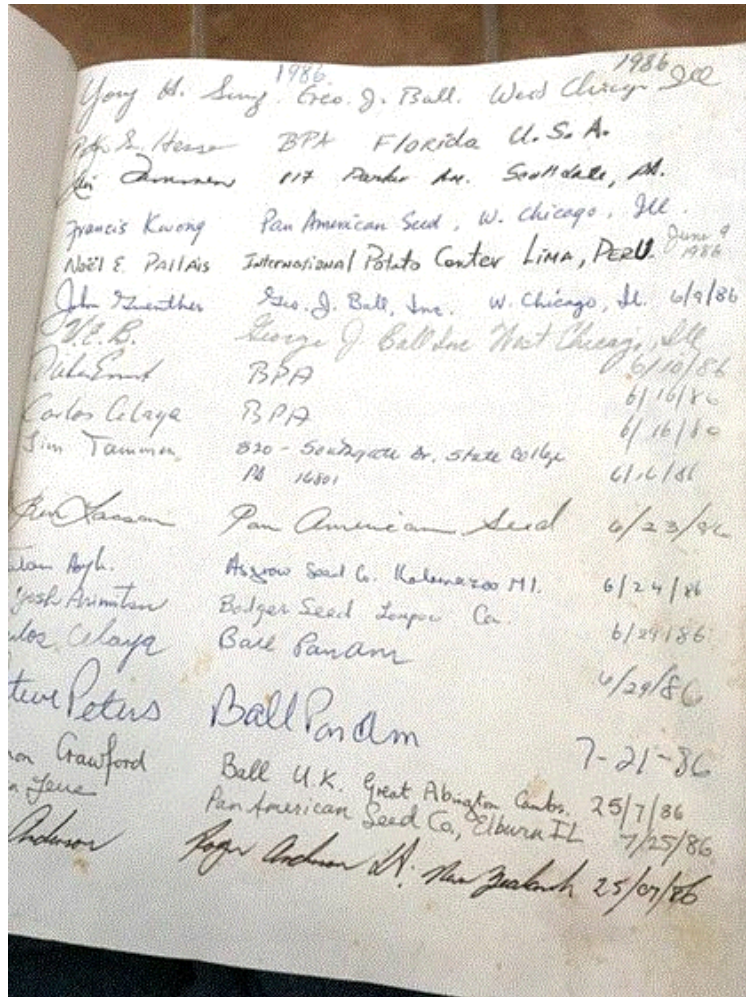 1986 1986
Yong H. Sung Geo. J. Ball. West Chicago Ill
BPA Florida U.S.A.
817 Parker Av. Scottdale, PA.
Francis Kwong Pan American Seed, W. Chicago, Ill.
Noël E. Pallais International Potato Center Lima, PERU. June 9 1986
John Guenther Geo. J. Ball, Inc. W. Chicago, Il. 6/9/86
V.E.B. George J Ball Inc West Chicago, Ill
6/10/86
BPA 6/16/86
Carlos Celaya BPA 6/16/86
Jim Tammen 820 - Southgate Dr. State College
PA 16801 6/16/86
Ken Lasson Pan American Seed 6/23/86
Asgrow Seed Co. Kalamazoo MI. 6/24/86
Yosh Arimitsu Bodger Seed Lompoc Ca. 6/29/86
los Celaya Ball PanAm 6/29/86
teve Peters Ball PanAm 7-21-86
non Crawford Ball U.K. Great Abington Cambs. 25/7/86
Pan American Seed Co, Elburn IL 7/25/86
Anderson Roger Anderson Lt. New Zealand 25/07/86